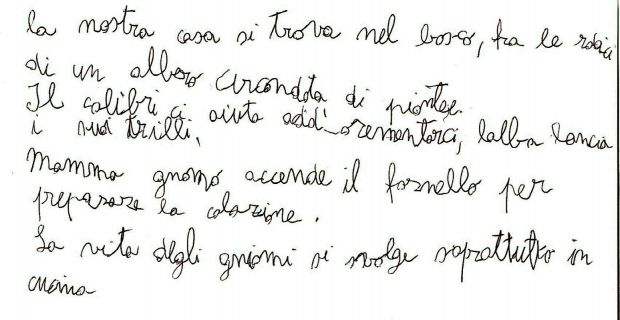 la nostra casa si trova nel bosco, fra le radici
di un albero circondata di piante.
Il colibrì ci aiuta add'orementarci, lalba lancia
i suoi trilli,
Mamma gnomo accende il fornello per
preparare la colazione.
La vita degli gniomi si svolge soprattutto in
cucina